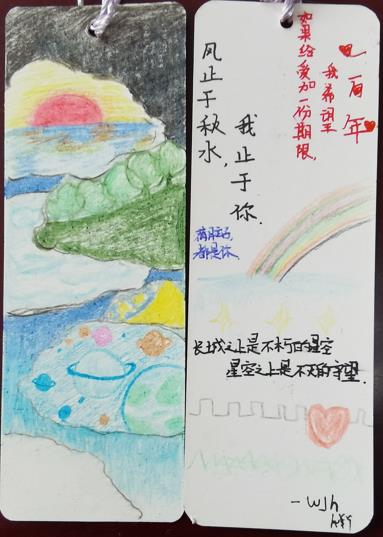 风止于秋水,
我止于你.
如果给爱加一份期限,
我希望是
一百年
都是你.
长城之上是不朽的星空
星空之上是不灭的守望.
-wjh